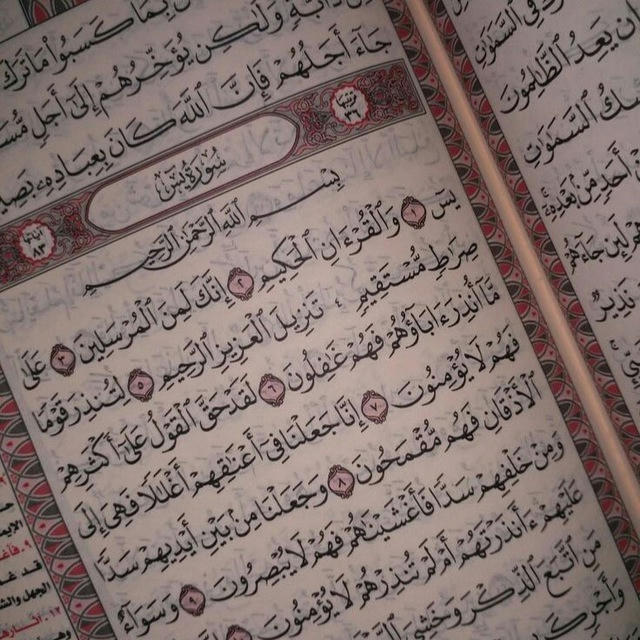 بِمَا كَسَبُوا۟ مَا تَرَكَ
دَآبَّةٍ وَلَـٰكِن يُؤَخِّرُهُمْ إِلَىٰٓ أَجَلٍ مُّسَ
جَآءَ أَجَلُهُمْ فَإِنَّ ٱللَّهَ كَانَ بِعِبَادِهِۦ بَصِ
سُورَةُ يسٓ
بِسْمِ ٱللَّهِ ٱلرَّحْمَـٰنِ ٱلرَّحِيمِ
يسٓ ١ وَٱلْقُرْءَانِ ٱلْحَكِيمِ ٢ إِنَّكَ لَمِنَ ٱلْمُرْسَلِينَ ٣ عَلَىٰ
صِرَٰطٍ مُّسْتَقِيمٍ ٤ تَنزِيلَ ٱلْعَزِيزِ ٱلرَّحِيمِ ٥ لِتُنذِرَ قَوْمًا
مَّآ أُنذِرَ ءَابَآؤُهُمْ فَهُمْ غَـٰفِلُونَ ٦ لَقَدْ حَقَّ ٱلْقَوْلُ عَلَىٰٓ أَكْثَرِهِمْ
فَهُمْ لَا يُؤْمِنُونَ ٧ إِنَّا جَعَلْنَا فِىٓ أَعْنَـٰقِهِمْ أَغْلَـٰلًا فَهِىَ إِلَى
ٱلْأَذْقَانِ فَهُم مُّقْمَحُونَ ٨ وَجَعَلْنَا مِنۢ بَيْنِ أَيْدِيهِمْ سَدًّا
وَمِنْ خَلْفِهِمْ سَدًّا فَأَغْشَيْنَـٰهُمْ فَهُمْ لَا يُبْصِرُونَ ٩ وَسَوَآءٌ
عَلَيْهِمْ ءَأَنذَرْتَهُمْ أَمْ لَمْ تُنذِرْهُمْ لَا يُؤْمِنُونَ
مَنِ ٱتَّبَعَ ٱلذِّكْرَ وَخَشِىَ
وَأَجْرٍ كَرِ
ٱلسَّمَـٰوَٰ
إِن يَعِدُ ٱلظَّـٰلِمُونَ
ٱلسَّمَـٰوَٰتِ
أَحَدٍ مِّنۢ بَعْدِهِ
لَئِن جَآءَهُمْ
نَذِيرٌ